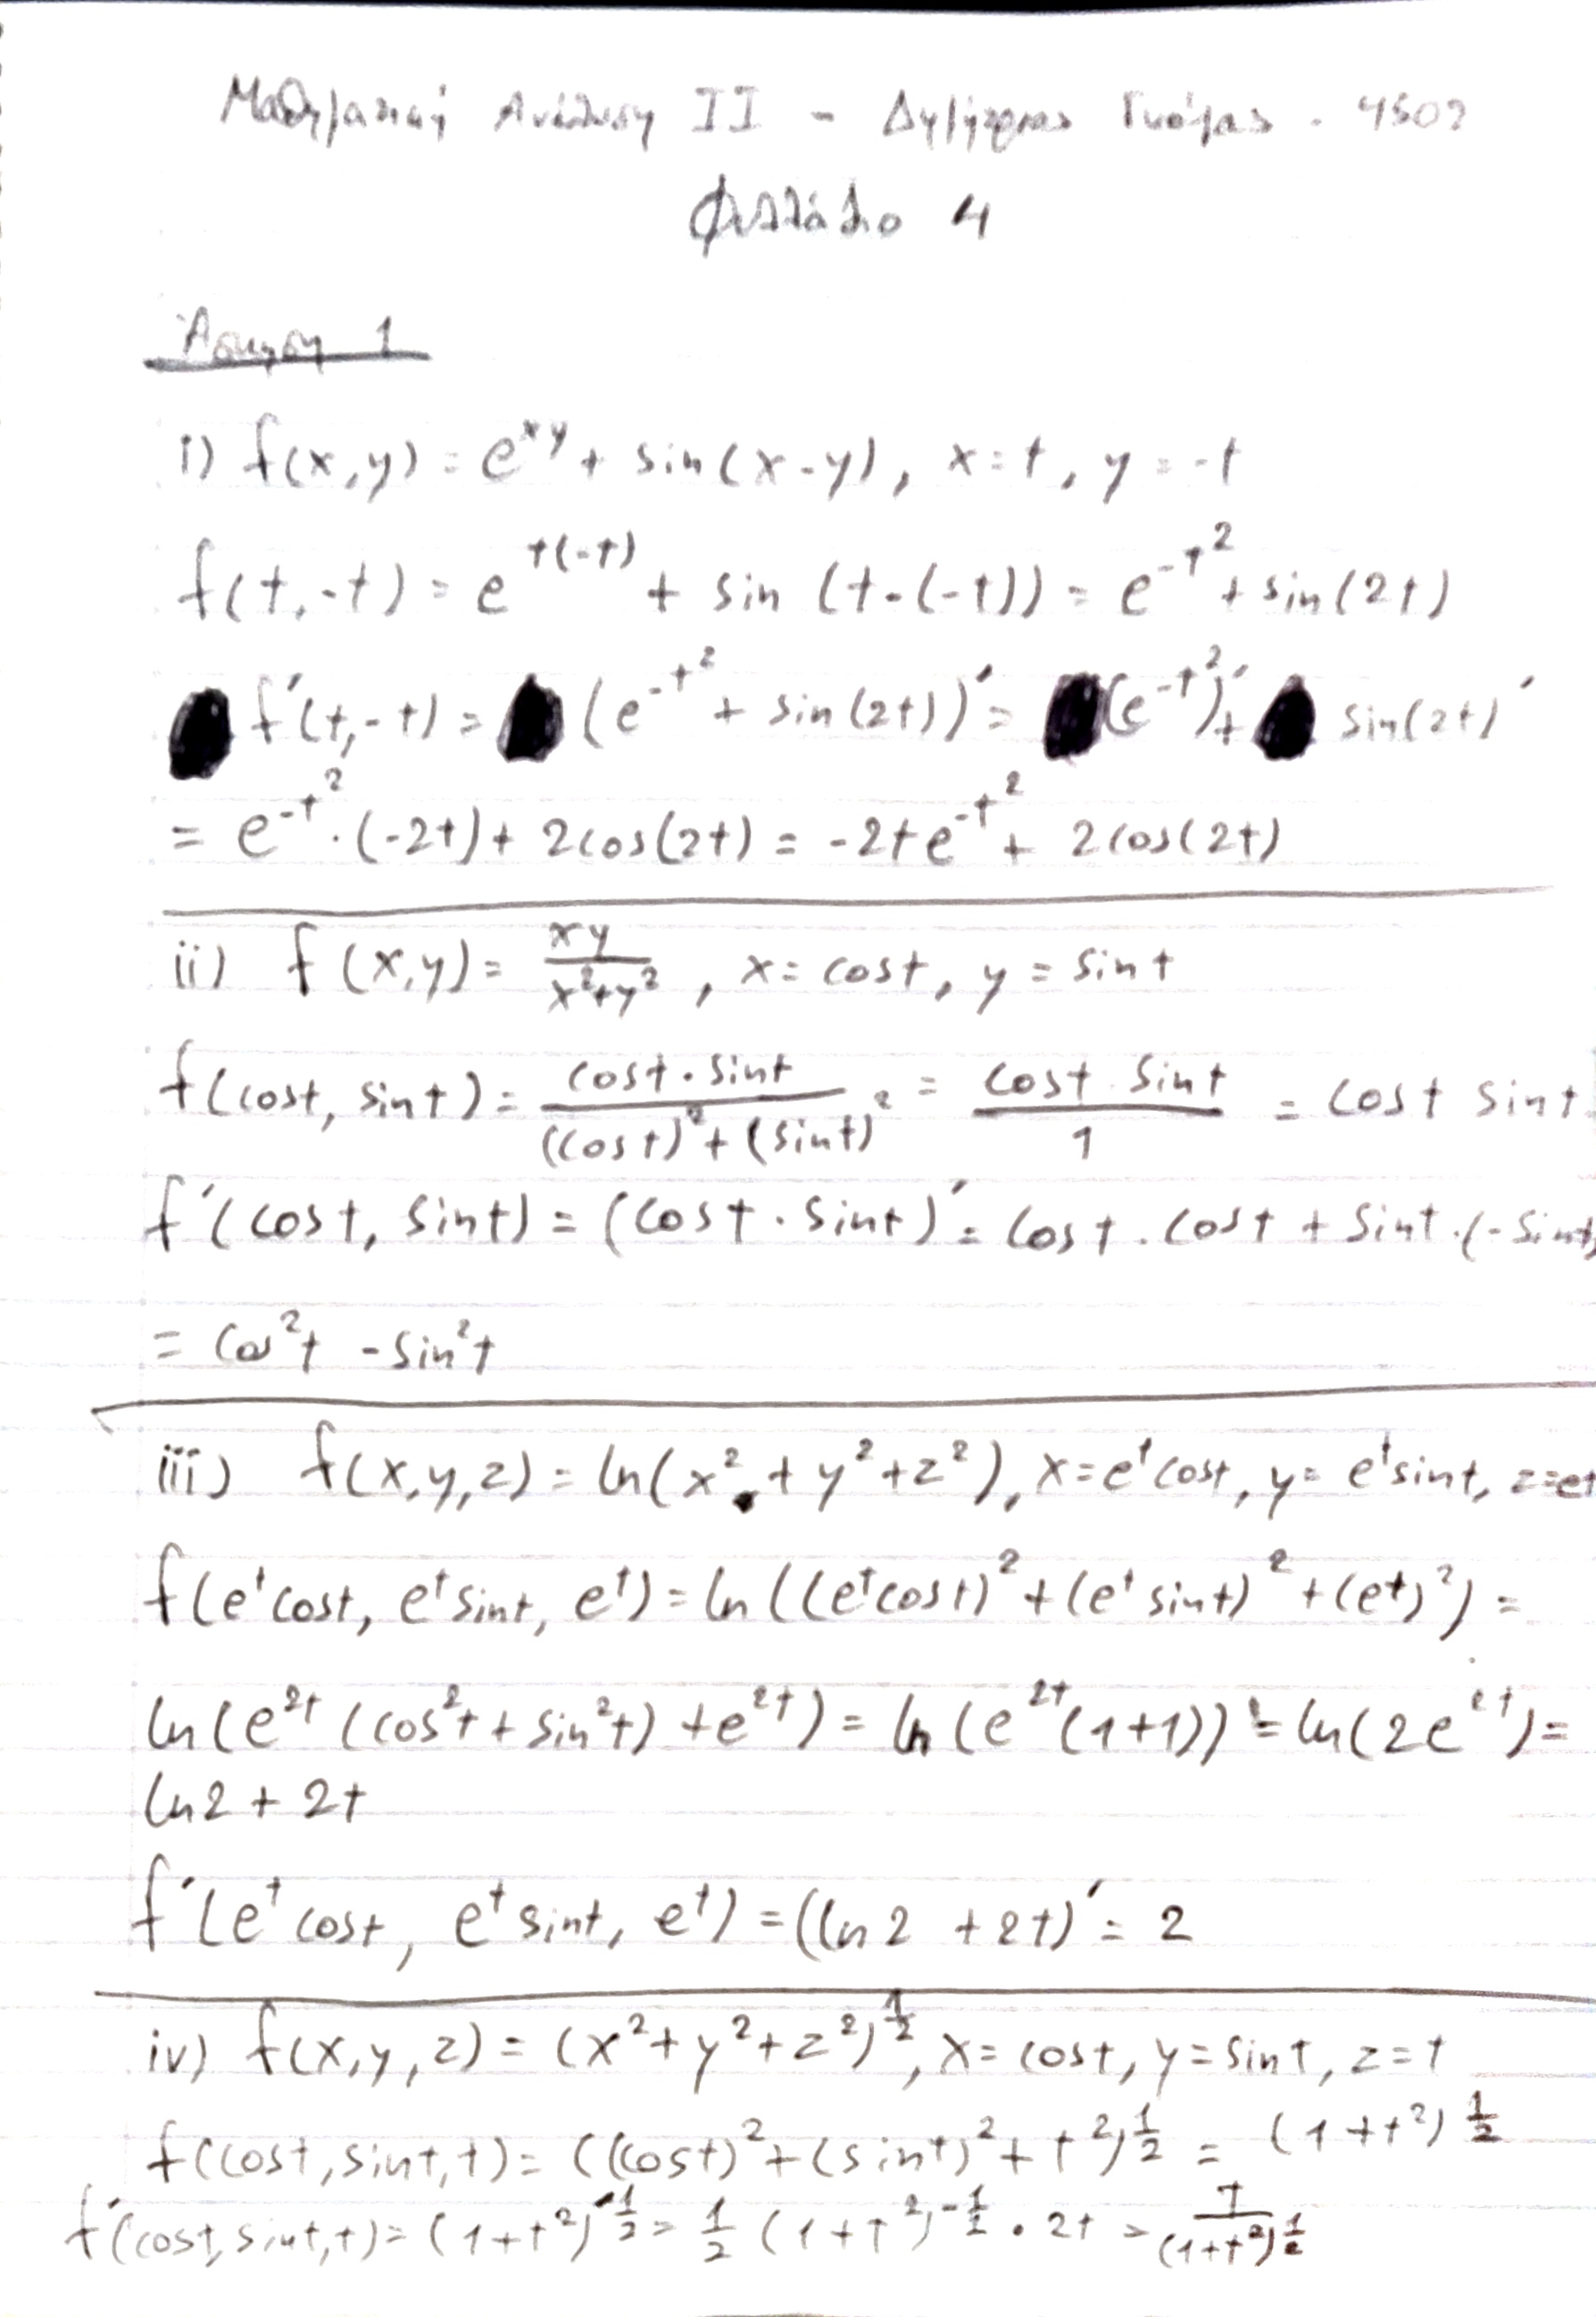 Μαθηματική Ανάλυση II - Δημήτρης - 4502
Φυλλάδιο 4
Άσκηση 1
i) f(x,y) = e^{xy} + sin(x-y), x=t, y=-t
f(t,-t) = e^{t(-t)} + sin (t-(-t)) = e^{-t^2} + sin(2t)
f'(t,-t) = (e^{-t^2} + sin(2t))' = (e^{-t^2})' + sin(2t)'
= e^{-t^2} · (-2t) + 2cos(2t) = -2te^{-t^2} + 2cos(2t)
ii) f(x,y) = \frac{xy}{x^2+y^2}, x = cost, y = sint
f(cost, sint) = \frac{cost·sint}{(cost)^2+(sint)^2} = \frac{cost·sint}{1} = cost sint
f'(cost, sint) = (cost·sint)' = cost·cost + sint·(-sint)
= cos^2t - sin^2t
iii) f(x,y,z) = ln(x^2 + y^2 + z^2), x=e^tcost, y=e^tsint, z=e^t
f(e^tcost, e^tsint, e^t) = ln((e^tcost)^2 + (e^tsint)^2 + (e^t)^2) =
ln(e^{2t}(cos^2t + sin^2t) + e^{2t}) = ln(e^{2t}(1+1)) = ln(2e^{2t}) =
ln2 + 2t
f'(e^tcost, e^tsint, e^t) = (ln2 + 2t)' = 2
iv) f(x,y,z) = (x^2+y^2+z^2)^{\frac{1}{2}}, x=cost, y=sint, z=t
f(cost,sint,t) = ((cost)^2+(sint)^2+t^2)^{\frac{1}{2}} = (1+t^2)^{\frac{1}{2}}
f'(cost,sint,t) = (1+t^2)'^{\frac{1}{2}} = \frac{1}{2}(1+t^2)^{-\frac{1}{2}} · 2t = \frac{t}{(1+t^2)^{\frac{1}{2}}}